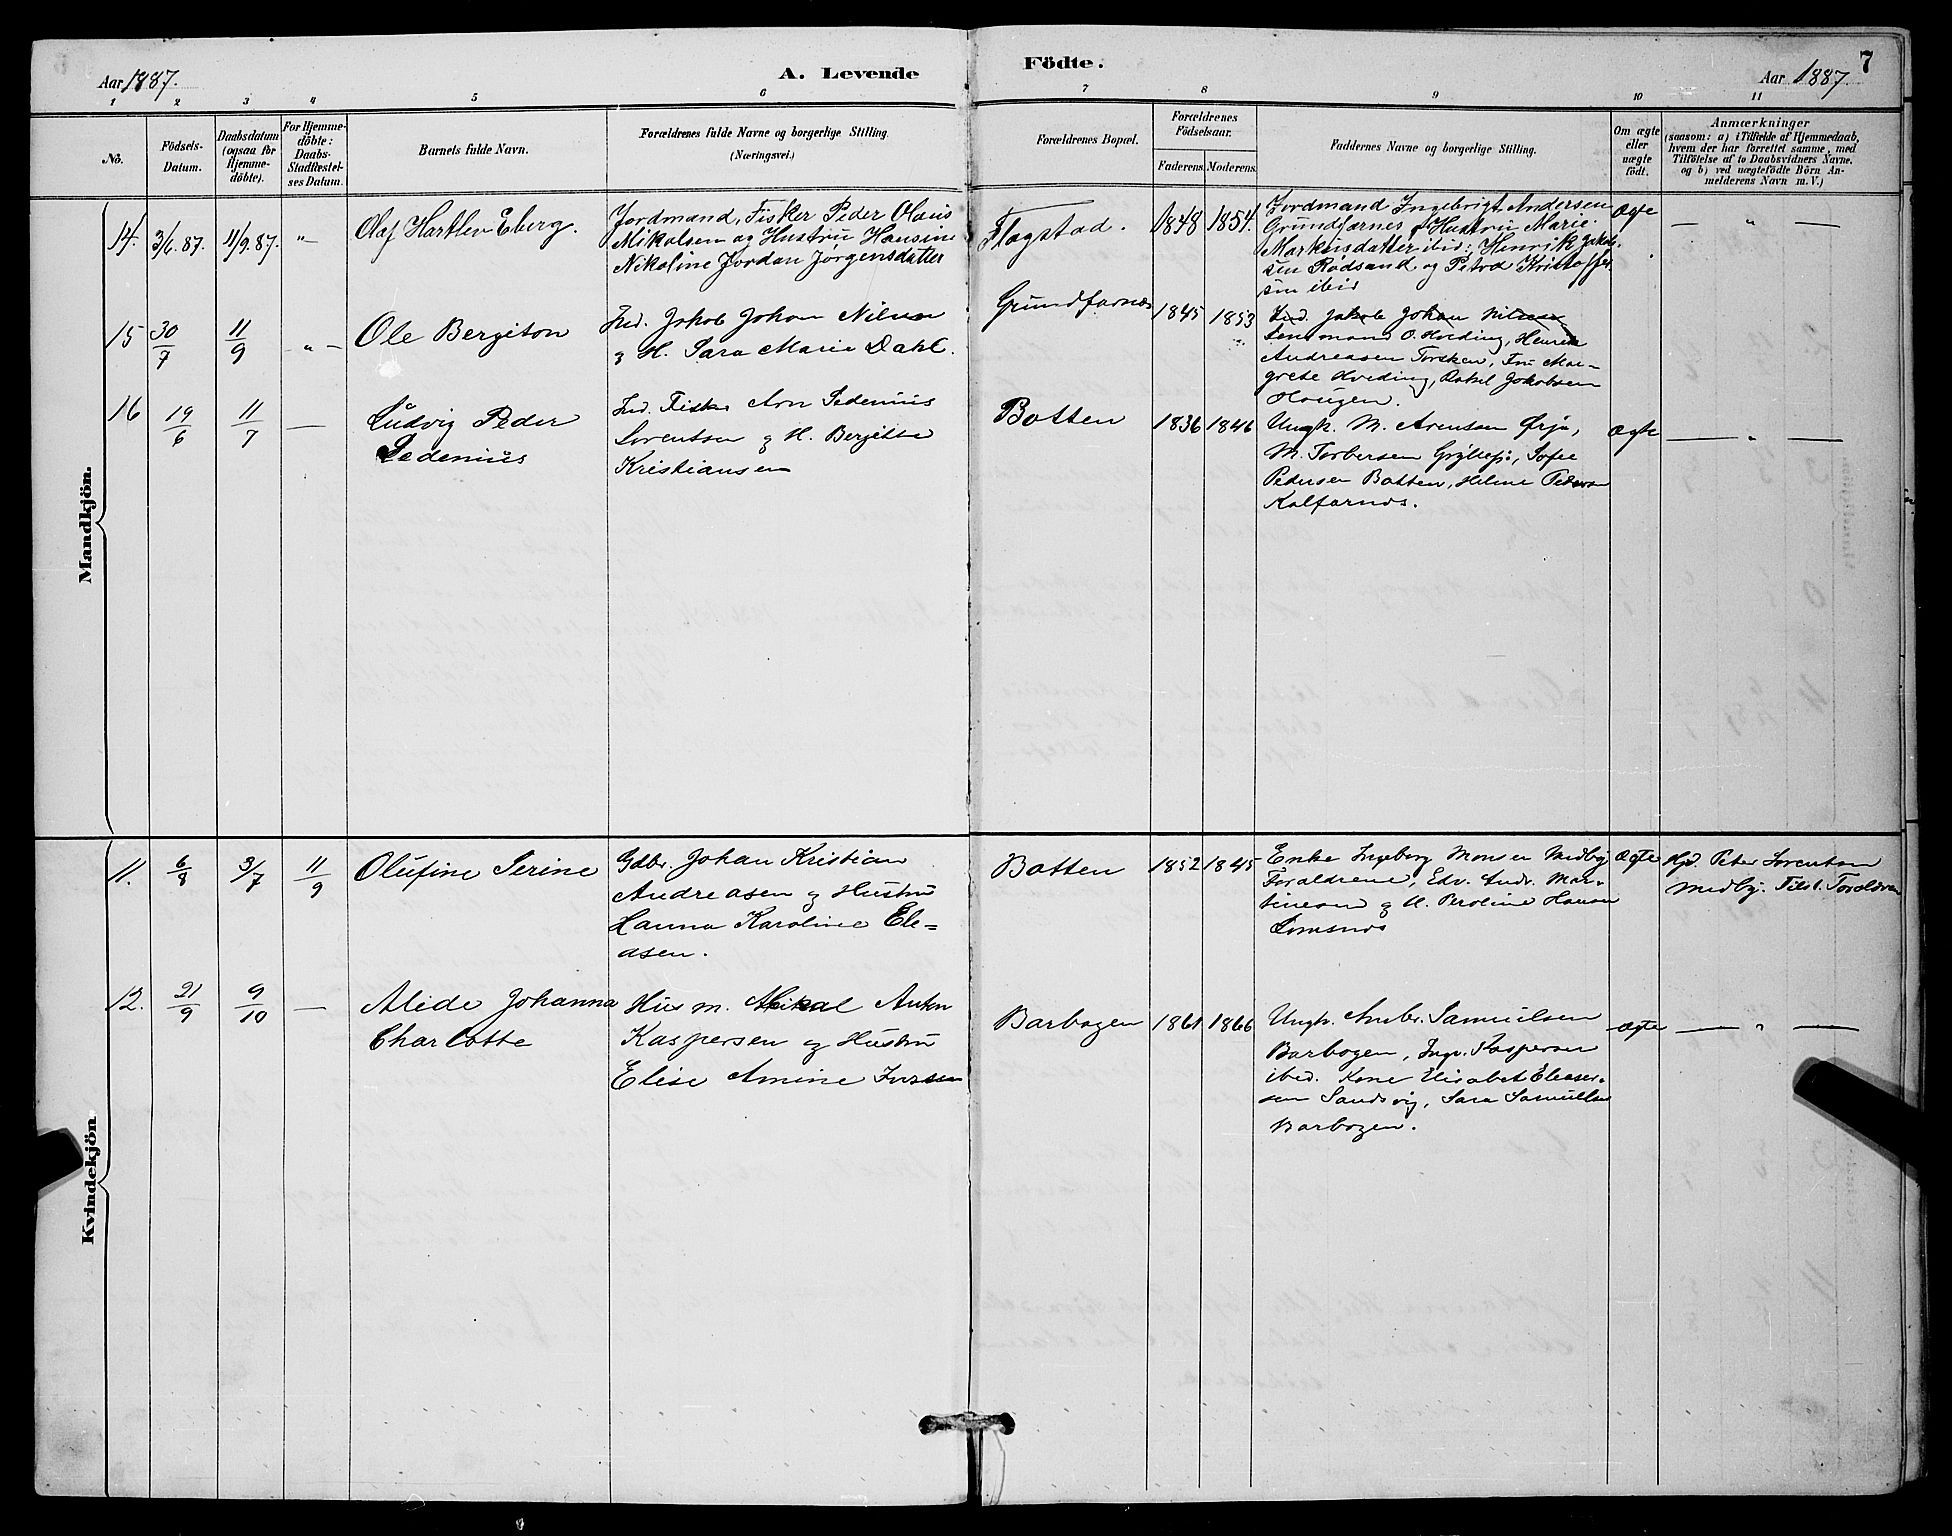 Aar 1887.
A. Levende
Födte.
Aar 1887.
7
1 2 3 4 5 6 7 8 9 10 11
No.
Födsels-
Datum.
Daabsdatum
(ogsaa for
Hjemme-
döbte).
For Hjemme-
döbte:
Daabs-
Stadfæstel-
ses Datum.
Barnets fulde Navn.
Forældrenes fulde Navne og borgerlige Stilling.
(Næringsvei.)
Forældrenes Bopæl.
Forældrenes
Födselsaar.
Faderens Moderens
Faddernes Navne og borgerlige Stilling.
Om ægte
eller
uægte
födt.
Anmærkninger
(saasom: a) i Tilfælde af Hjemmedaab,
hvem der har forrettet samme, med
Tilföielse af to Daabsvidners Navne.
og b) ved uægtefödte Börn An-
melderens Navn m. V.)
Mandkjön.
14. 3/6. 87. 11/9. 87. „ –
Olaf Hartlev Eberg.
Jordmand, Fisker Peder Olaus
Mikalsen og Hustru Hansine
Nikoline Jordan Jørgensdatter
Flagstad.
1848 1854.
Jordmand Ingebrigt Andersen
Grundfarnes og Hustru Marie
Markusdatter ibid; Henrik Jakob-
sen Rødsand og Petra Kristoffer
sen ibid
Ægte
— „ —
15 30/7 11/9 – „ –
Ole Bergiton
Ind. Jakob Johan Nilsen
og H. Sara Marie Dahl.
Grundfarnes
1845 1853
Ind. Jakob Johan Nilsen
Lensmand O. Hveding, Henrik
Andreasen Torsken, Fru Mar-
grete Hveding, Rakel Jakobsen
Haugen.
16 19/6 11/7 —
Ludvig Peder
Sedenius
Ind. Fisk. Arn Sedenius
Sorentsen og H. Bergitte
Kristiansen
Botten
1836 1846
Ungk. M. Arentsen Ørjo,
M. Torbersen Gryllefj:, Sofie
Pedersen Botten, Heline Pedersen
Kalfarnes.
Ægte
— „ —
Kvindekjön
11. 6/8 3/7 11/9
Olufine Serine
Gdbr. Johan Kristian
Andreasen og Hustru
Hanna Karoline Ele-
asen.
Botten
1852 1845
Enke Ingeborg Monsen Medby
Foraldrene, Edv. Andr. Mar-
tinesen og H. Peroline Hansen
Lomsnes
Ægte
Hjd. Peter Sorentsen
Medby. Tilst. Foraldren
12. 21/9 9/10 —
Alide Johanna
Charlotte
Husm. Mikal Anton
Kaspersen og Hustru
Elise Amine Iversen
Barbogen
1861 1866
Ungk. Ambr. Samuelsen
Barbogen, Ingv. Kaspersen
ibid. Kone Elisabet Eleaser-
sen Sandsvig, Sara Samuelsen
Barbogen.
Ægte
— „ —